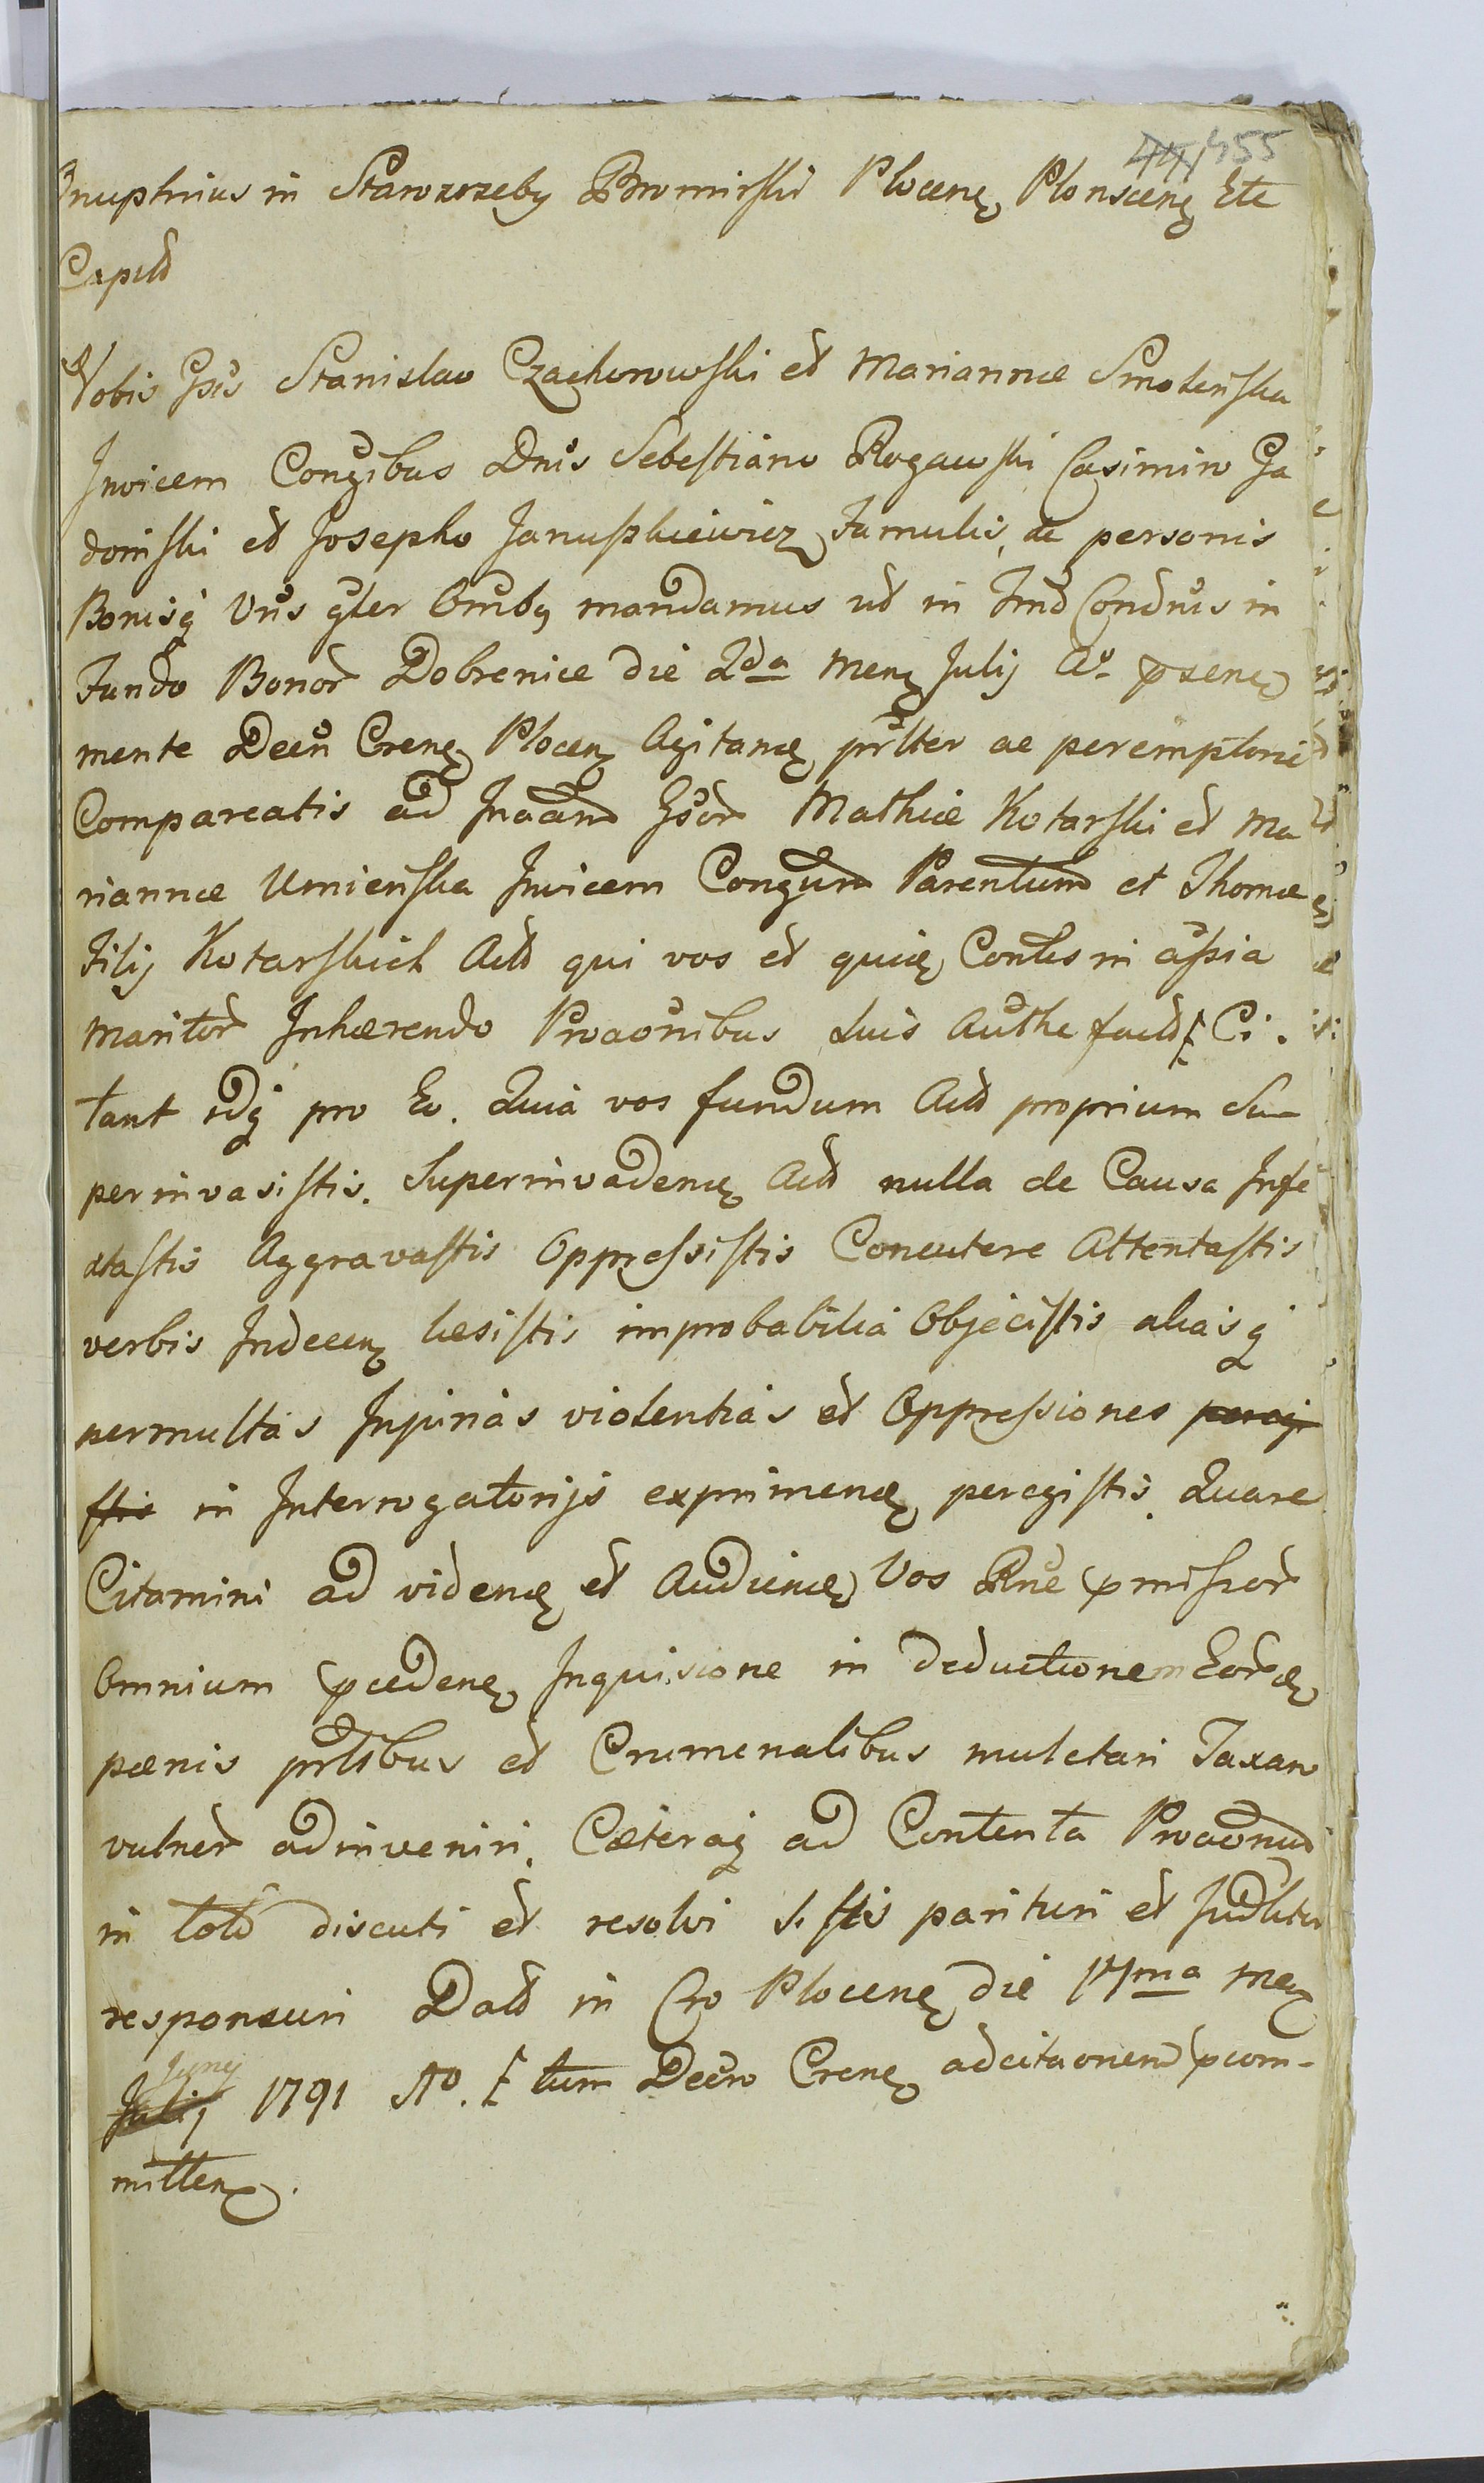 455
Onuphrius in Starozrzeby Bromirski Plocen Plonscen Etc
Capit
Vobis Gsis Stanislao Czachorowski et Mariannæ Smolenska
Invicem Congibus Dnis Sebestiano Rogawski Casimiro Ga
domski et Josepho Januszkiewicz Famulis, de personis
Bonisq Vris gster Omby mandamus ut in Tmo Condris in
Fundo Bonor Dobrenice die 2da Men Julij Ao psenc
mente Decri Crenę Plocen Agitanę prlter ac peremptorie
Compareatis ad Inaam Gsor Mathiæ Kotarski et Ma
riannæ Umienska Invicem Congum Parentum et Thomæ
Filij Kotarskich Act qui vos et quię Contes in assia
Maritor Inhærendo Proaonibus Suis Authe fact Ci.
tant idq pro Eo. Quia vos fundum Act proprium Su
perinvasistis. Superinvadenę Act nulla de Causa Infe
stastis Aggravastis Oppressistis Concutere Attentastis
verbis Indecen læsistis improbabilia Objecistis aliasq
permultas Injurias violentias et Oppressiones peragi
stis in Interrogatorijs exprimenę peregistis. Quare
Citamini ad videnę et Audienę Vos Rne pmissor
Omnium pcedenę Inquisione in deductionem Eor
pænis prlibus et Crumenalibus mulctari Taxam
vulner adinveniri. Cæteraq ad Contenta Proaonum
in toto discuti et resolvi Sittis parituri et Judliter
responsuri Dat in Cro Plocenę die 17ma Men
Julij Junij 1791 Ao. tum Decro Crenę adcitaonem pcom-
mitten.